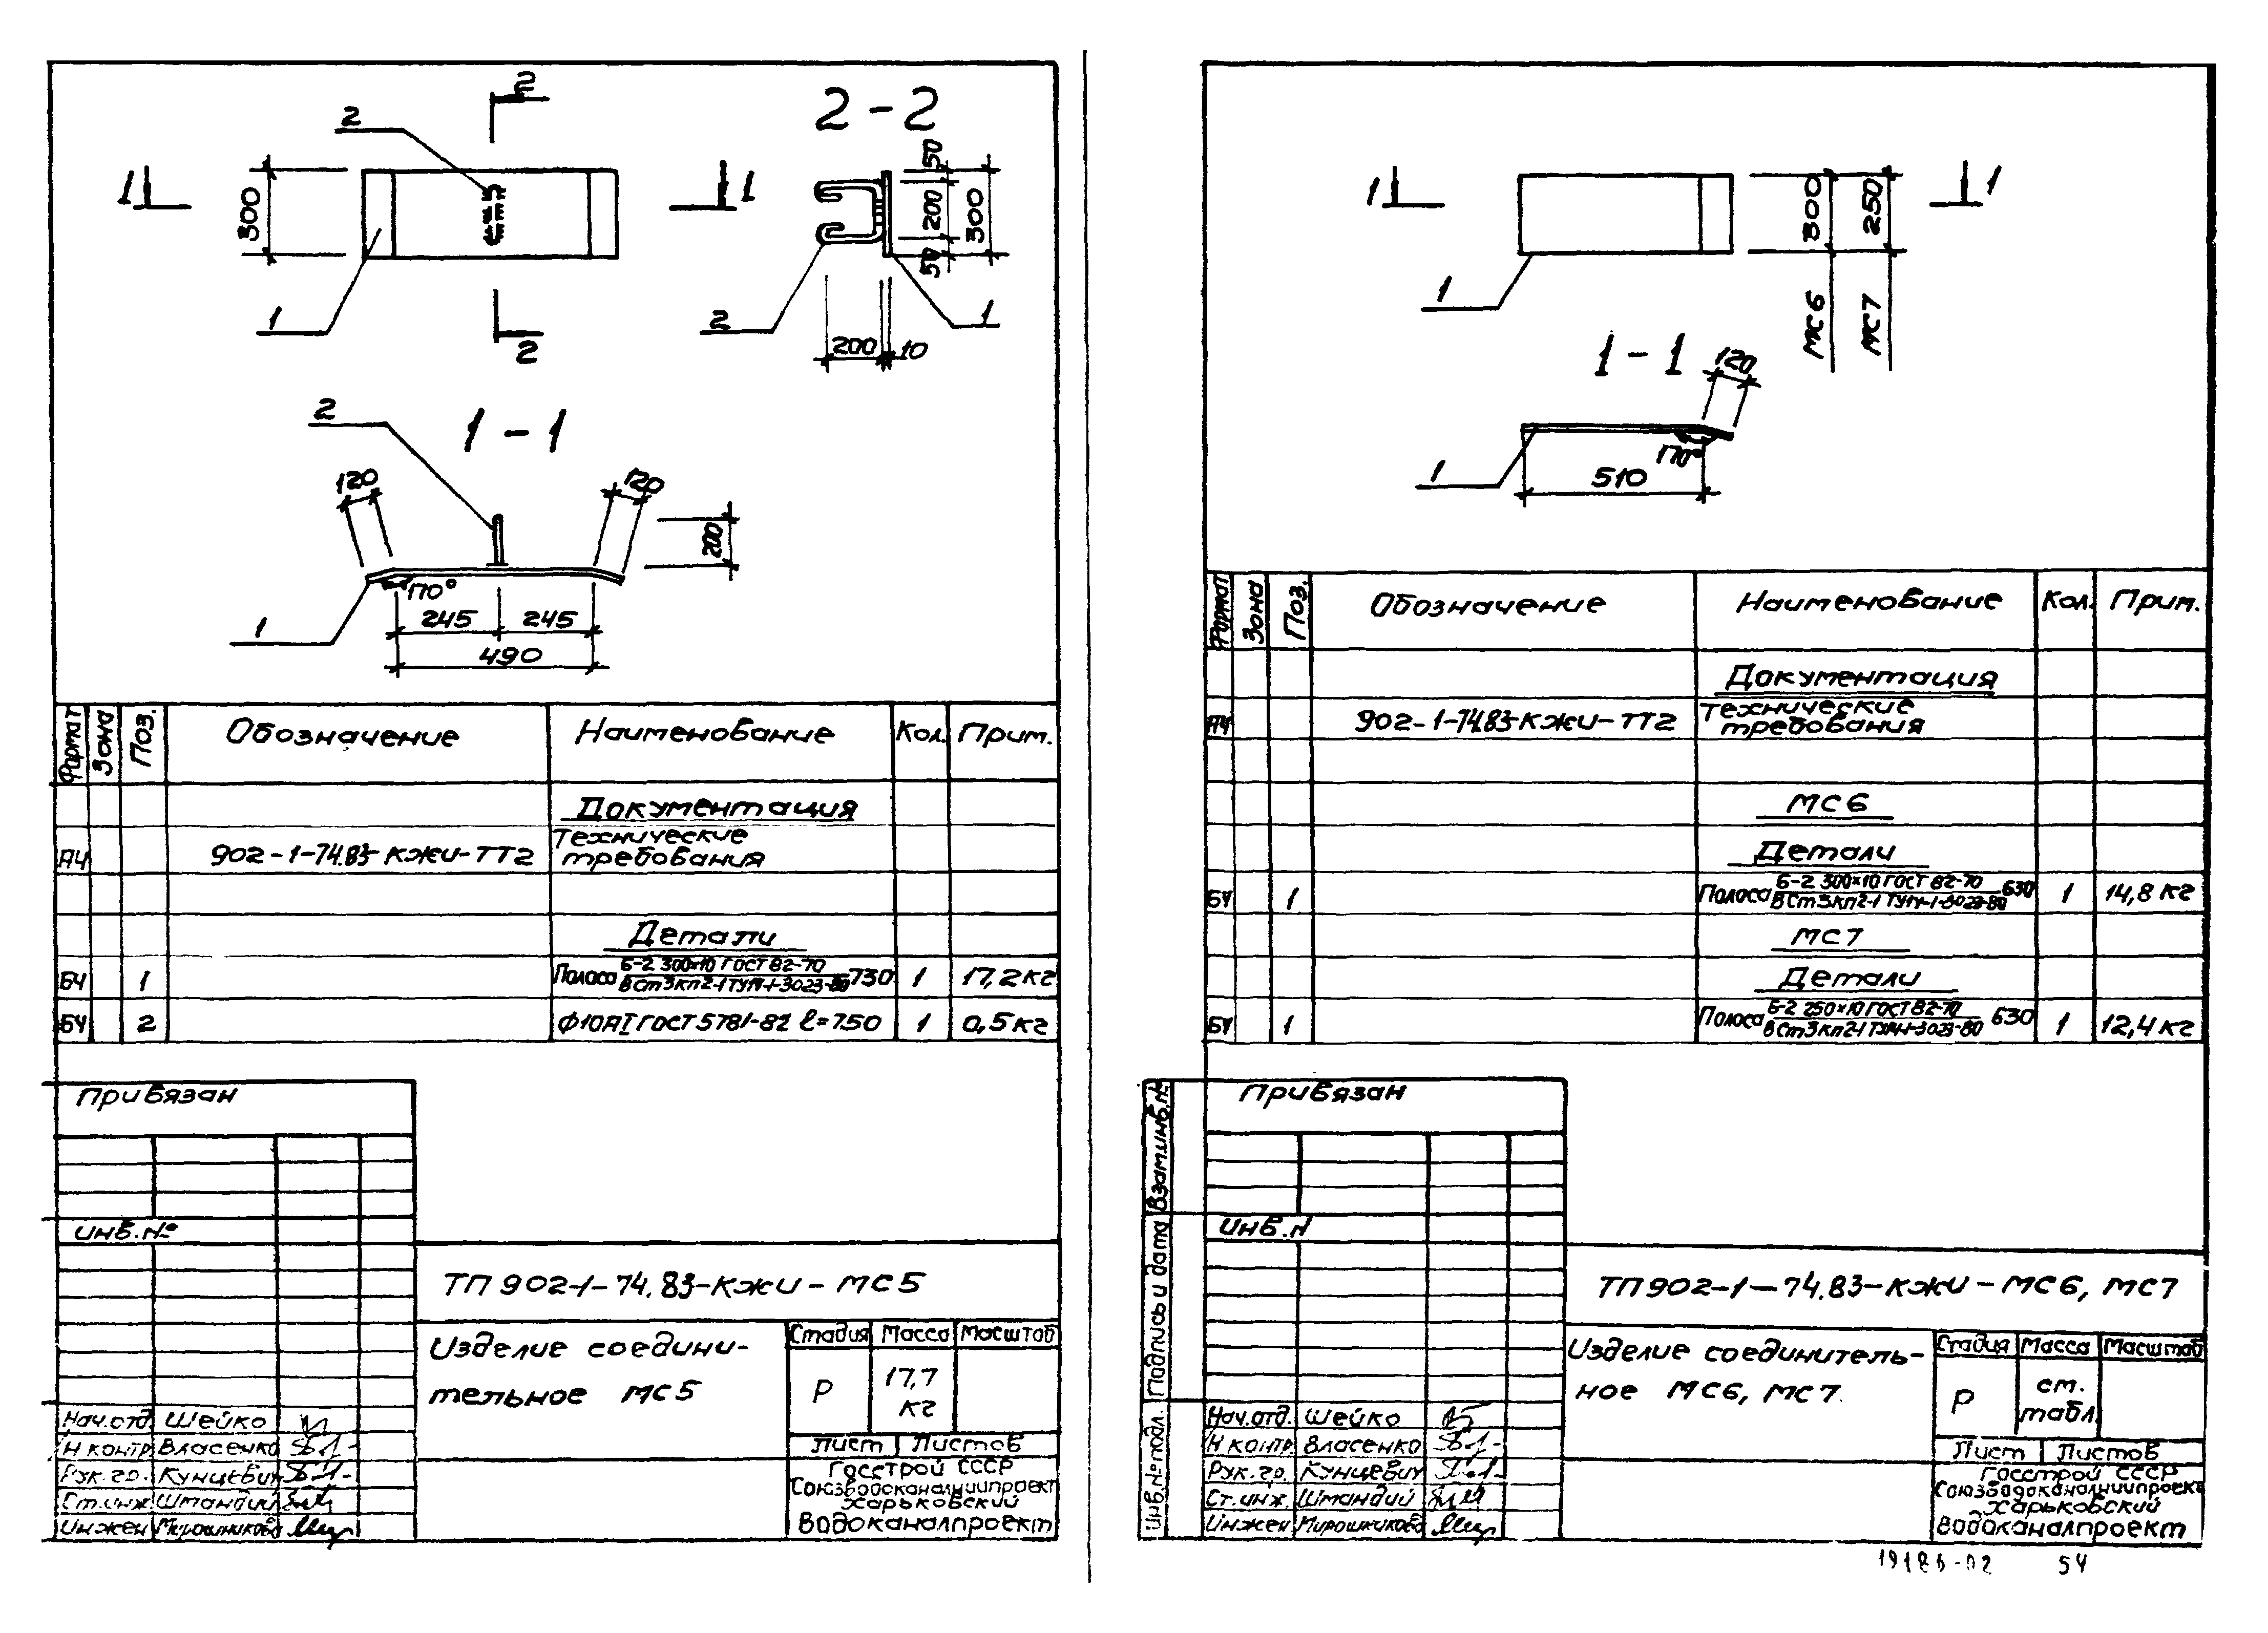 2
2
2-2
50
1
1
300
200
300
50
1
2
1
2
200
10
2
1-1
120
120
200
170°
1
245
245
490
Формат
Зона
Поз.
Обозначение
Наименование
Кол.
Прим.
Документация
А4
902-1-74.83-КЖИ-ТТ2
Технические
требования
Детали
БЧ
1
Полоса
Б-2 300×10 ГОСТ 82-70
ВСт3кп2-1 ТУ14-1-3023-80
730
1
17,2кг
БЧ
2
Ф10АI ГОСТ 5781-82 ℓ=750
1
0,5кг
Привязан
инв.№
ТП 902-1-74.83-КЖИ-МС5
Изделие соедини-
тельное МС5
Стадия
Масса
Масштаб
Р
17,7
кг
Лист
Листов
Госстрой СССР
Союзводоканалниипроект
Харьковский
Водоканалпроект
Нач.отд.
Шейко
Н контр.
Власенко
Рук.гр.
Кунцевич
Ст.инж.
Штандий
Инжен
Мирошникова
1
1
300
250
1
МС6
МС7
1-1
120
170°
1
510
Формат
Зона
Поз.
Обозначение
Наименование
Кол.
Прим.
Документация
А4
902-1-74.83-КЖИ-ТТ2
Технические
требования
МС6
Детали
БЧ
1
Полоса
Б-2 300×10 ГОСТ 82-70
ВСт3кп2-1 ТУ14-1-3023-80
630
1
14,8кг
МС7
Детали
БЧ
1
Полоса
Б-2 250×10 ГОСТ 82-70
ВСт3кп2-1 ТУ14-1-3023-80
630
1
12,4кг
Привязан
инв.N
Взам.инв.№
Подпись и дата
Инв.№подл.
ТП 902-1-74.83-КЖИ-МС6, МС7
Изделие соединитель-
ное МС6, МС7
Стадия
Масса
Масштаб
Р
см.
табл.
Лист
Листов
Госстрой СССР
Союзводоканалниипроект
Харьковский
Водоканалпроект
Нач.отд.
Шейко
Н контр.
Власенко
Рук.гр.
Кунцевич
Ст.инж.
Штандий
Инжен
Мирошникова
54